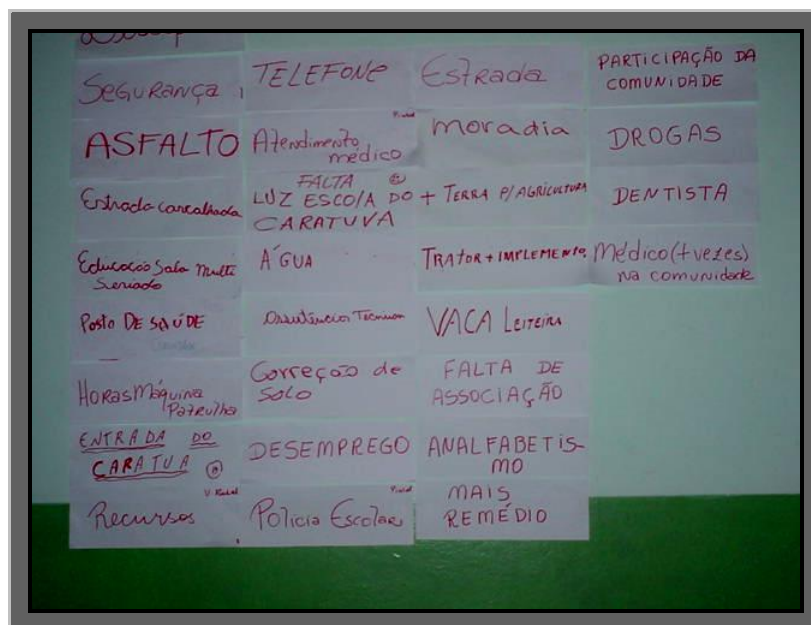 Segurança
ASFALTO
Estrada cascalhada
Educação Sala Multi
Seriado
Posto DE SAÚDE
Horas Máquina
Patrulha
ENTRADA DO
CARATUA
Recursos
TELEFONE
Atendimento
médico
FALTA
LUZ ESCOLA DO
CARATUVA
ÁGUA
Correção de
Solo
DESEMPREGO
Policia Escolar
Estrada
moradia
+ TERRA P/ AGRICULTURA
TRATOR + IMPLEMENTO
VACA LEITEIRA
FALTA DE
ASSOCIAÇÃO
ANALFABETIS-
MO
MAIS
REMÉDIO
PARTICIPAÇÃO DA
COMUNIDADE
DROGAS
DENTISTA
Médico (+ vezes)
na comunidade